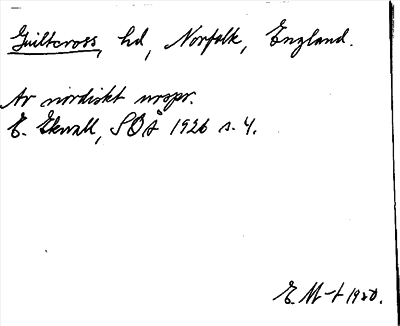 Guiltcross, hd, Norfolk, England.
Av nordiskt urspr.
E. Ekwall, SOÅ 1926 s. 4.
E. M-t 1980.